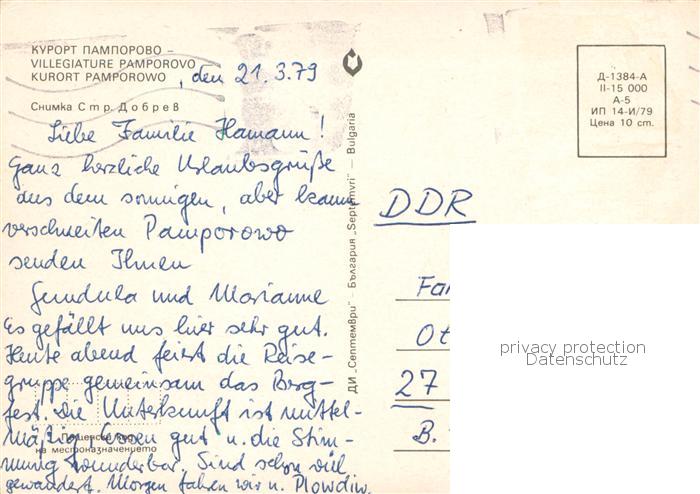 КУРОРТ ПАМПОРОВО –
VILLEGIATURE PAMPOROVO
KURORT PAMPOROWO
, den 21.3.79
Снимка Стр. Добрев
Liebe Familie Hamann!
Ganz herzliche Urlaubsgrüße
aus dem sonnigen, aber kaum
verschneiten Pamporowo
senden Ihnen
Gundula und Marianne
Es gefällt uns hier sehr gut.
Heute abend feiert die Reise-
gruppe gemeinsam das Berg-
fest. Die Unterkunft ist mittel-
mäßig, Essen gut u. die Stim-
mung wunderbar. Sind schon viel
gewandert. Morgen fahren wir n. Plowdiw.
Пощенски код
на местоназначението
ДИ „Септември" – България „Septemvri" – Bulgaria
Д-1384-А
II-15 000
А-5
ИП 14-И/79
Цена 10 ст.
DDR
Fa
Ot
27
B.
privacy protection
Datenschutz